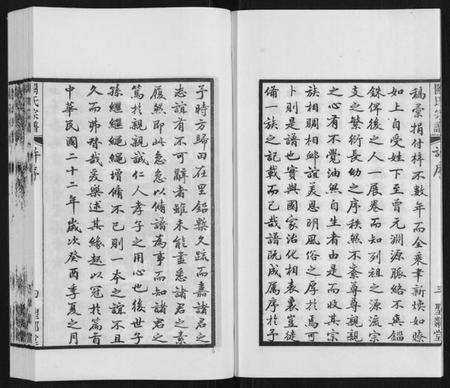 稿彙捐付梓不數年而全乘聿新煥如瞭
如上自受姓下至曾元淵源脈絡不與錙
銖俾後之人一展卷而知列祖之源流宗
支之繁衍長幼之序秩然不紊尊尊親親
之心有不覺油然自生者由是而收其宗
族相賙相卹誼美恩明風俗之厚於焉可
卜則是譜也實與國家治化相表裏豈徒
備一族之記載而已哉譜既成屬序於予
三 聖鄰堂
予時方歸田在里銘槃久疏而嘉諸君之
志誼有不可辭者雖未能盡悉諸君之素
履然即此急急以脩譜為事而知諸君之
篤於親親誠仁人孝子之用心也後世子
孫繼繼繩繩增脩不已則一本之誼不且
久而弗替哉爰樂述其緣起以冠於篇首
中華民國二十二年歲次癸酉季夏之月
氏宗譜 序